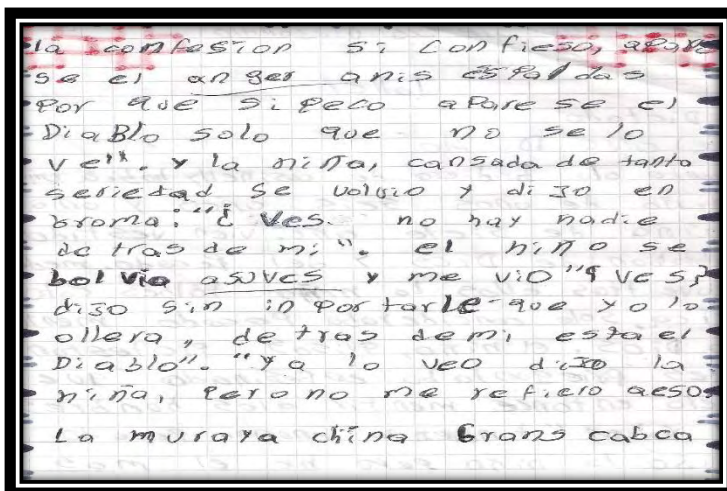 la comfesion si confieso, apare
se el anger anis espaldas
Por que si peco aparese el
DiaBlo solo que no se lo
ve". y la niña, cansada de tanta
seriedad se volvio y dijo en
broma: "¿ Ves. no hay nadie
de tras de mi". el niño se
bolvio asuves y me vio "¿ Ves?
dijo sin inportarle que yo lo
ollera, de tras demi esta el
Diablo". "ya lo veo dijo la
niña, pero no me refiero aeso
La muraya china Grans cabca